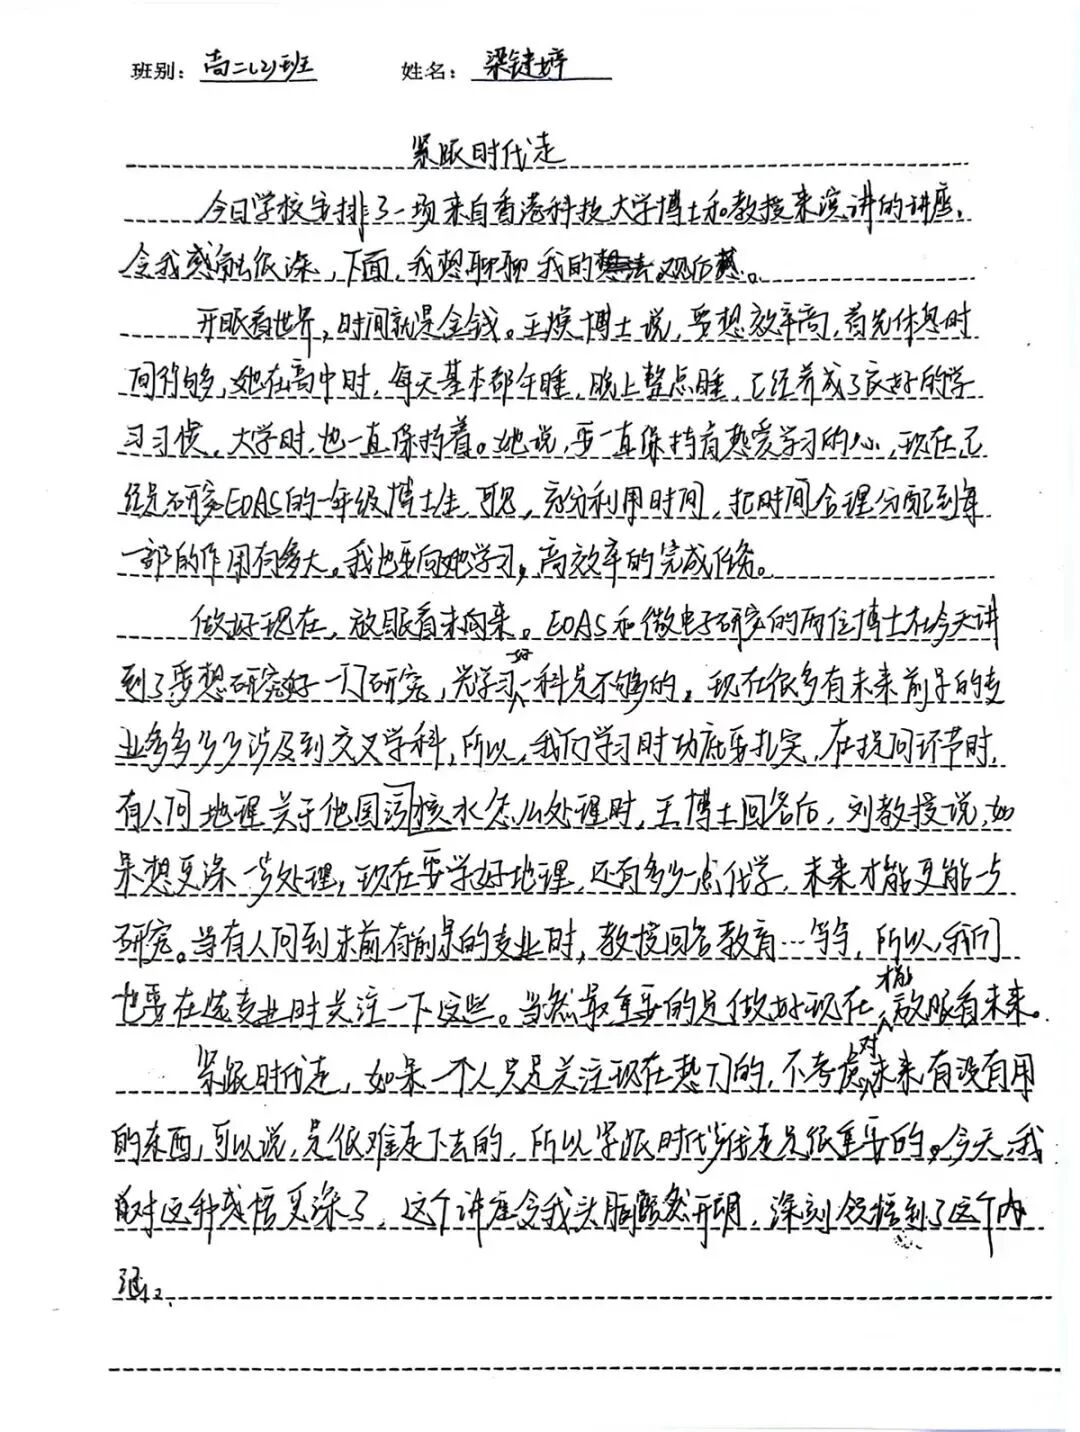 班别: 高二(2)班 姓名: 梁键婷
紧跟时代走
今日学校安排了一项来自香港科技大学博士和教授来演讲的讲座,
令我感触很深,下面,我想聊聊我的观后感。
开眼看世界,时间就是金钱。王焕博士说,要想效率高,首先休息时
间得够,她在高中时,每天基本都午睡,晚上整点睡,已经养成了良好的学
习习惯。大学时,也一直保持着。她说,要一直保持有热爱学习的心,现在已
经是研究EOAS的一年级博士生,可见,充分利用时间,把时间合理分配到每
一部的作用有多大。我也要向她学习,高效率的完成任务。
做好现在,放眼看未来。EOAS和微电子研究的两位博士在今天讲
到了要想研究好一门研究,光学习好一科是不够的。现在很多有未来前景的专
业多多少少涉及到交叉学科,所以,我们学习时功底要扎实,在提问环节时,
有人问地理关于他国污核水怎么处理时,王博士回答后,刘教授说,如
果想更深一步处理,现在要学好地理,还有多少一点化学,未来才能更能一步
研究。当有人问到未前有前景的专业时,教授回答教育…等等,所以,我们
也要在选专业时关注一下这些。当然最重要的是做好现在才能放眼看未来。
紧跟时代走,如果一个人只是关注现在热门的,不考虑对未来有没有用
的东西,可以说,是很难走下去的,所以紧跟时代步伐走是很重要的。今天,我
对这种感悟更深了,这个讲座令我头脑豁然开朗,深刻领悟到了这个内
涵。